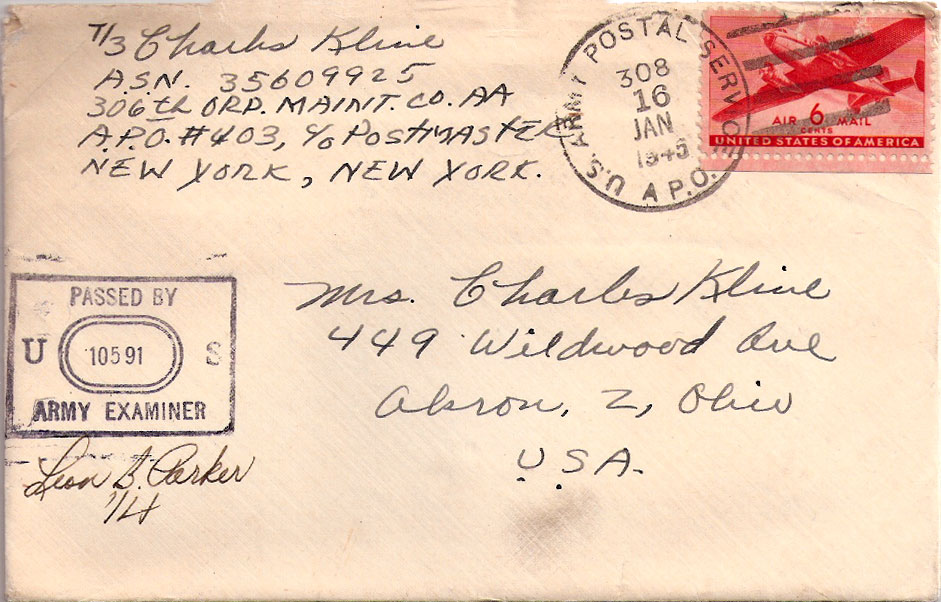 T/3 Charles Kline
A.S.N. 35609925
306th ORD. MAINT. CO. AA
A.P.O. #403, c/o POSTMASTER
NEW YORK, NEW YORK.
U.S. ARMY POSTAL SERVICE
308
16
JAN
1945
A.P.O.
AIR 6 MAIL
CENTS
UNITED STATES OF AMERICA
PASSED BY
U 10591 S
ARMY EXAMINER
Leon B. Parker
Mrs. Charles Kline
449 Wildwood Ave
Akron, 2, Ohio
USA.